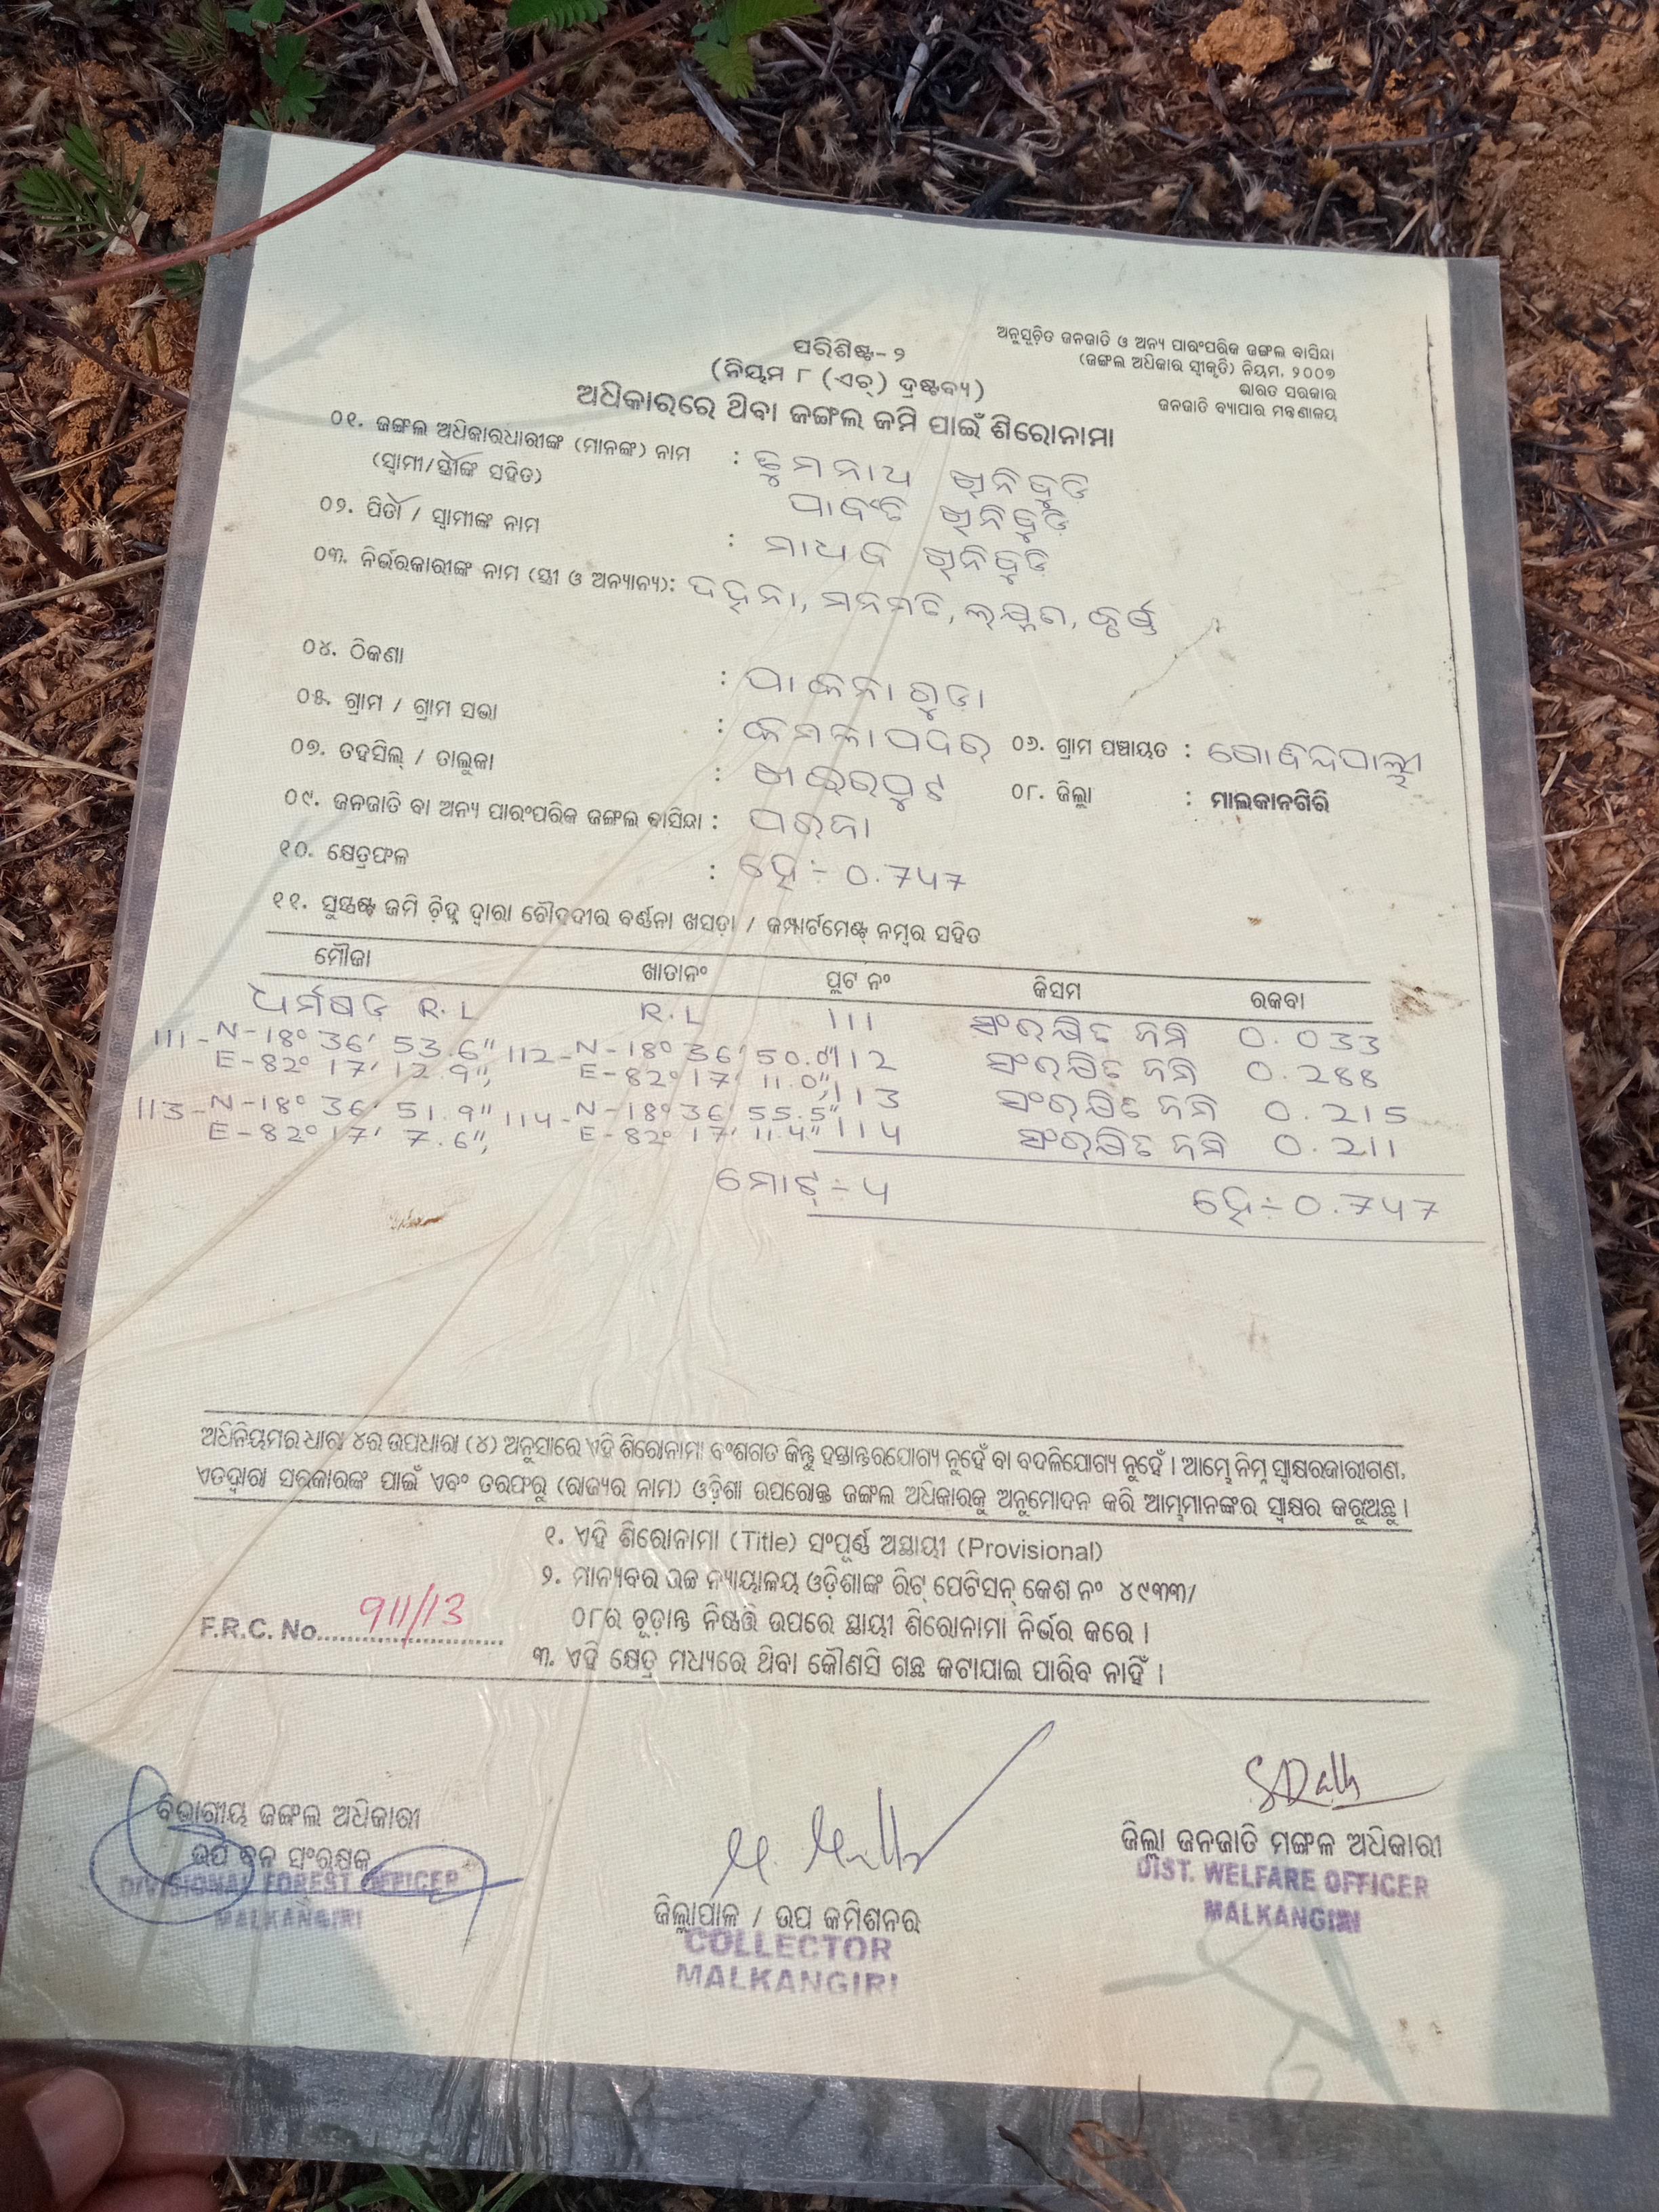 ଅନୁସୂଚିତ ଜନଜାତି ଓ ଅନ୍ୟ ପାରଂପରିକ ଜଙ୍ଗଲ ବାସିନ୍ଦା
(ଜଙ୍ଗଲ ଅଧିକାର ସ୍ୱୀକୃତି) ନିୟମ, ୨୦୦୭
ଭାରତ ସରକାର
ଜନଜାତି ବ୍ୟାପାର ମନ୍ତ୍ରଣାଳୟ
ପରିଶିଷ୍ଟ-୨
(ନିୟମ ୮ (ଏଚ୍) ଦ୍ରଷ୍ଟବ୍ୟ)
ଅଧିକାରରେ ଥିବା ଜଙ୍ଗଲ ଜମି ପାଇଁ ଶିରୋନାମା
୦୧. ଜଙ୍ଗଲ ଅଧିକାରଧାରୀଙ୍କ (ମାନଙ୍କ) ନାମ :
(ସ୍ୱାମୀ/ସ୍ତ୍ରୀଙ୍କ ସହିତ)
୦୨. ପିତା / ସ୍ୱାମୀଙ୍କ ନାମ : ମାଧବ
୦୩. ନିର୍ଭରକାରୀଙ୍କ ନାମ (ସ୍ତ୍ରୀ ଓ ଅନ୍ୟାନ୍ୟ): ମନମତି, ଲକ୍ଷ୍ମଣ,
୦୪. ଠିକଣା :
୦୫. ଗ୍ରାମ / ଗ୍ରାମ ସଭା : ୦୬. ଗ୍ରାମ ପଞ୍ଚାୟତ : ଗୋବିନ୍ଦପାଲ୍ଲୀ
୦୭. ତହସିଲ୍ / ତାଲୁକା : ଖଇରପୁଟ ୦୮. ଜିଲ୍ଲା : ମାଲକାନଗିରି
୦୯. ଜନଜାତି ବା ଅନ୍ୟ ପାରଂପରିକ ଜଙ୍ଗଲ ବାସିନ୍ଦା : ପରଜା
୧୦. କ୍ଷେତ୍ରଫଳ : ହେ÷ 0.747
୧୧. ସୁସ୍ପଷ୍ଟ ଜମି ଚ଼ିହ୍ନ ଦ୍ୱାରା ଚୌହଦୀର ବର୍ଣ୍ଣନା ଖସଡ଼ା / କମ୍ପାର୍ଟମେଣ୍ଟ୍ ନମ୍ବର ସହିତ
ମୌଜା ଖାତାନଂ ପ୍ଲଟ ନଂ କିସମ ରକବା
R.L R.L 111 ସଂରକ୍ଷିତ ଜମି 0.033
111-N-18° 36' 53.6" 112-N-18° 36' 50.0" 112 ସଂରକ୍ଷିତ ଜମି 0.288
E-82° 17' 12.9", E-82° 17' 11.0", 113 ସଂରକ୍ଷିତ ଜମି 0.215
113-N-18° 36' 51.9" 114-N-18° 36' 55.5"
E-82° 17' 7.6", E-82° 17' 11.4" 114 ସଂରକ୍ଷିତ ଜମି 0.211
ମୋଟ୍÷4 ହେ÷0.747
ଅଧିନିୟମର ଧାରା ୪ର ଉପଧାରା (୪) ଅନୁସାରେ ଏହି ଶିରୋନାମା ବଂଶଗତ କିନ୍ତୁ ହସ୍ତାନ୍ତରଯୋଗ୍ୟ ନୁହେଁ ବା ବଦଳିଯୋଗ୍ୟ ନୁହେଁ । ଆମ୍ଭେ ନିମ୍ନ ସ୍ୱାକ୍ଷରକାରୀଗଣ,
ଏତଦ୍ୱାରା ସରକାରଙ୍କ ପାଇଁ ଏବଂ ତରଫରୁ (ରାଜ୍ୟର ନାମ) ଓଡ଼ିଶା ଉପରୋକ୍ତ ଜଙ୍ଗଲ ଅଧିକାରକୁ ଅନୁମୋଦନ କରି ଆମ୍ଭମାନଙ୍କର ସ୍ୱାକ୍ଷର କରୁଅଛୁ ।
୧. ଏହି ଶିରୋନାମା (Title) ସଂପୂର୍ଣ୍ଣ ଅସ୍ଥାୟୀ (Provisional)
୨. ମାନ୍ୟବର ଉଚ୍ଚ ନ୍ୟାୟାଳୟ ଓଡ଼ିଶାଙ୍କ ରିଟ୍ ପେଟିସନ୍ କେଶ ନଂ ୪୯୩୩/
୦୮ର ଚୂଡ଼ାନ୍ତ ନିଷ୍ପତ୍ତି ଉପରେ ସ୍ଥାୟୀ ଶିରୋନାମା ନିର୍ଭର କରେ ।
F.R.C. No. 911/13
୩. ଏହି କ୍ଷେତ୍ର ମଧ୍ୟରେ ଥିବା କୌଣସି ଗଛ କଟାଯାଇ ପାରିବ ନାହିଁ ।
ବିଭାଗୀୟ ଜଙ୍ଗଲ ଅଧିକାରୀ
ଉପ ବନ ସଂରକ୍ଷକ
DIVISIONAL FOREST OFFICER
MALKANGIRI
ଜିଲ୍ଲାପାଳ / ଉପ କମିଶନର
COLLECTOR
MALKANGIRI
ଜିଲ୍ଲା ଜନଜାତି ମଙ୍ଗଳ ଅଧିକାରୀ
DIST. WELFARE OFFICER
MALKANGIRI